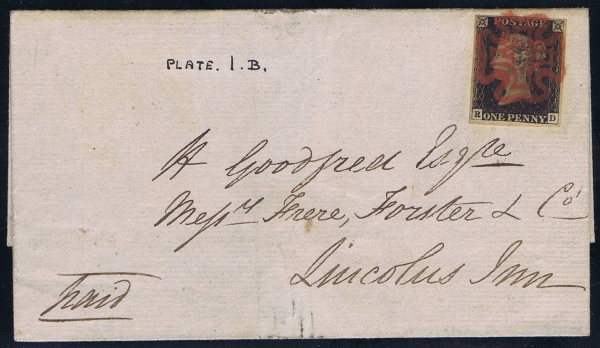 POSTAGE
PLATE. I.B.
R ONE PENNY D
H Goodfred Esqre
Messrs Frere, Forster & Co
Lincolns Inn
paid